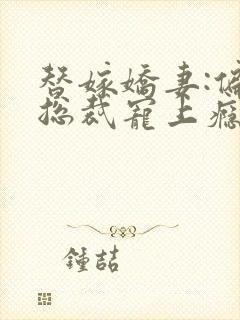 替嫁嬌妻:偏
总裁寵上癮
鍾喆